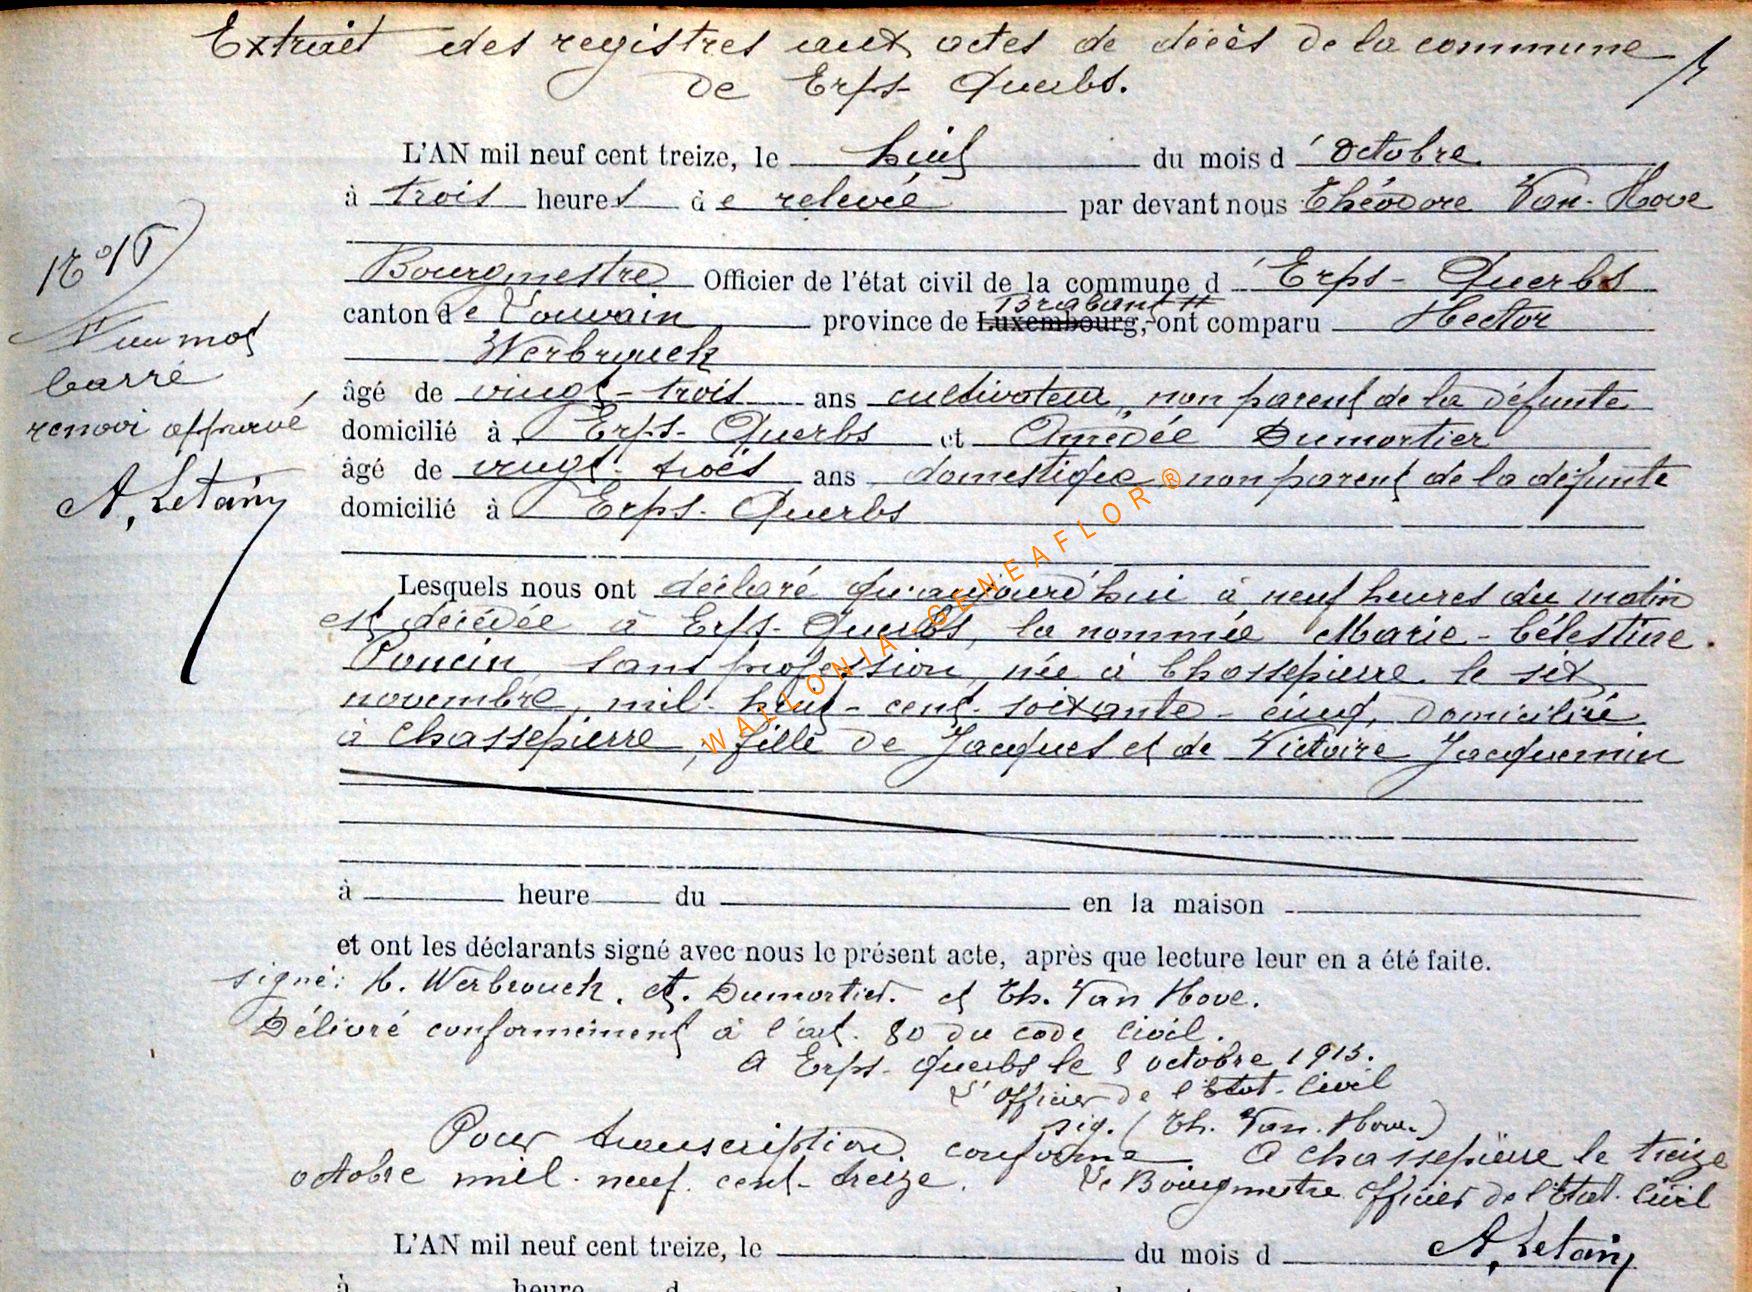 Extrait des registres aux actes de décès de la commune
de Erps-Querbs.
L'AN mil neuf cent treize, le huit du mois d'octobre
à trois heures de relevée par devant nous Théodore Van-Hove
Bourgmestre Officier de l'état civil de la commune d'Erps-Querbs
Brabant #
canton de Louvain province de Luxembourg, ont comparu Hector
Werbrouck
âgé de vingt-trois ans cultivateur, non parent de la défunte
domicilié à Erps-Querbs et Amédée Dumortier
âgé de vingt-trois ans domestique non parent de la défunte
domicilié à Erps-Querbs
Lesquels nous ont déclaré qu'aujourd'hui à neuf heures du matin
est décédée à Erps-Querbs, la nommée Marie-Célestine
Poncin, sans profession, née à Chassepierre le six
novembre, mil-huit-cent-soixante-cinq, domiciliée
à Chassepierre, fille de Jacques et de Victoire Jacquemin
à heure du en la maison
et ont les déclarants signé avec nous le présent acte, après que lecture leur en a été faite.
signé: H. Werbrouck. A. Dumortier. et Th. Van Hove.
Délivré conformément à l'art. 80 du code civil.
A Erps-Querbs le 8 octobre 1913.
L'officier de l'Etat-Civil
sig. (Th. Van. Hove.)
Pour transcription conforme A Chassepierre le treize
octobre mil-neuf cent-treize. Le Bourgmestre officier de l'Etat-Civil
A. Letainy
L'AN mil neuf cent treize, le du mois d
à heure d
# un mot
barré
renvoi approuvé
A. Letainy
WALLONIA GENEAFLOR ®